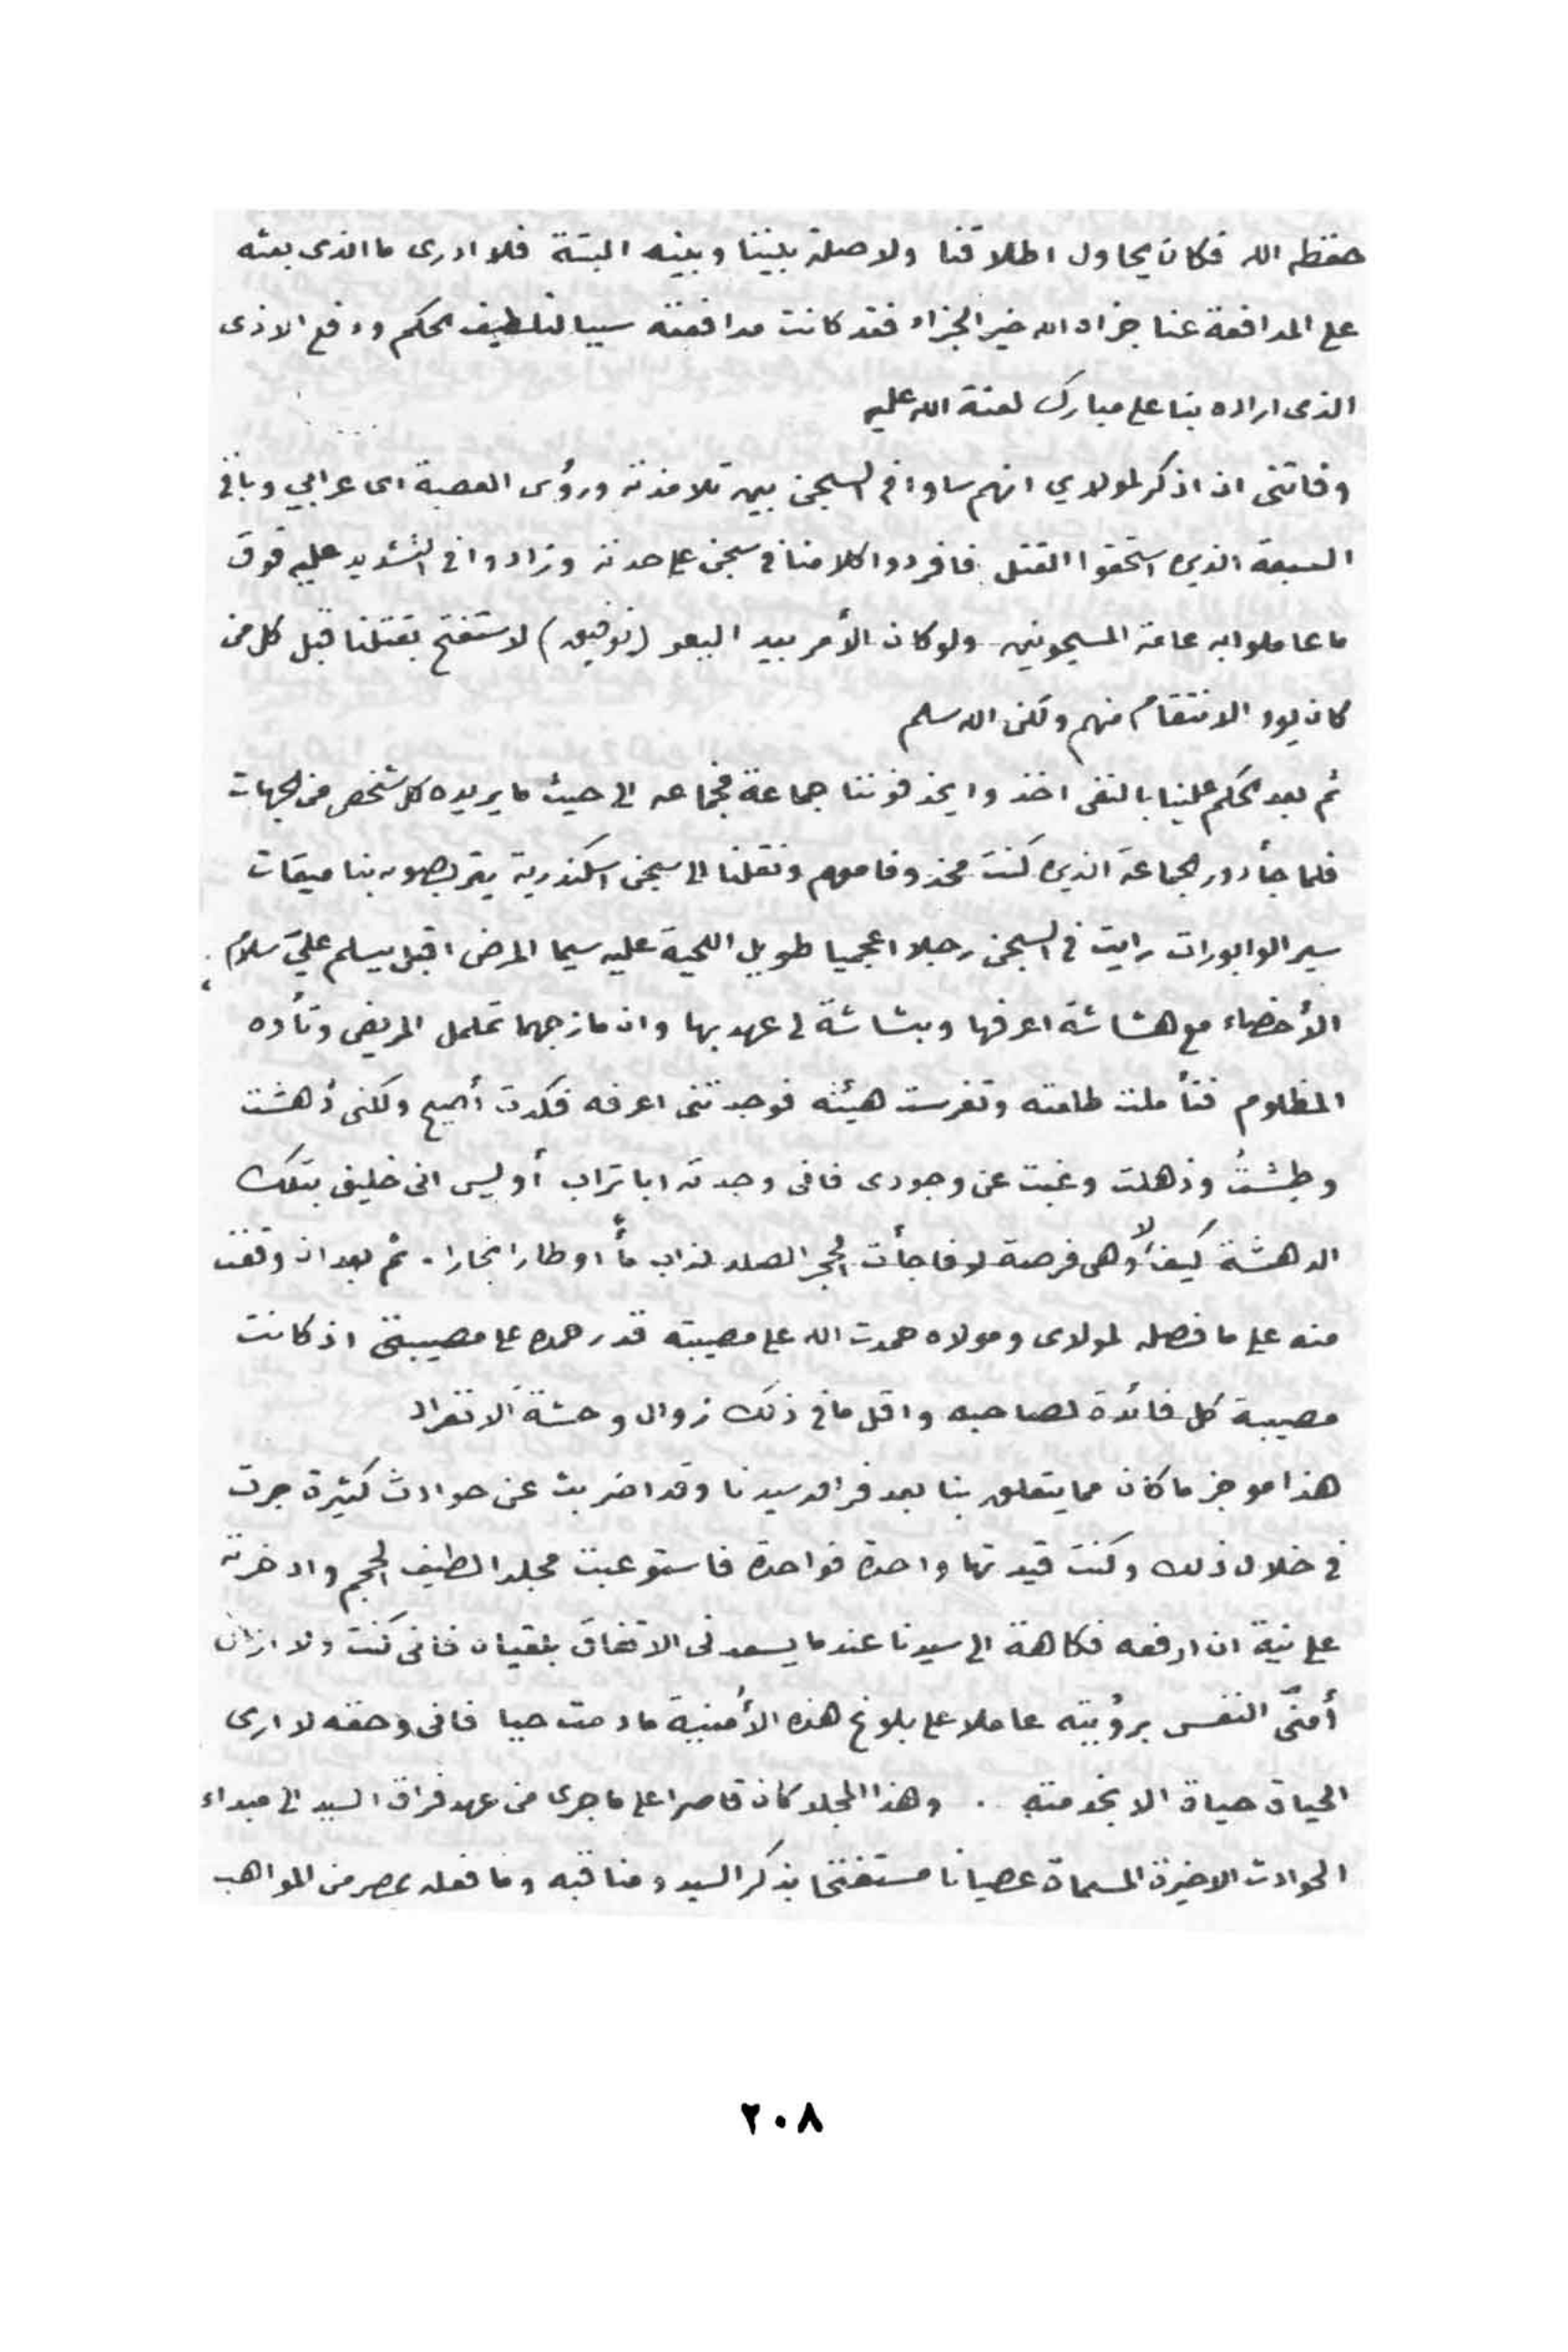 حفظه الله فكان يحاول اطلاقنا ولا صلة بيننا وبينه البتة فلا ادرى ما الذى بعثه
على المدافعة عنا جزاه الله خير الجزاء فقد كانت مدافعته سببا لتلطيف الحكم ودفع الاذى
الذى اراده بنا على مبارك لعنة الله عليه
وفاتنى ان اذكر لمولاي انهم ساووا فى السجن بين تلامذته ورؤس العصبة اى عرابي وباقى
السبعة الذين استحقوا القتل فافردوا كلا منا فى سجن على حدته وزادوا فى التشديد عليه فوق
ما عاملوا به عامة المسجونين ولو كان الأمر بيد البعو (توفيق) لاستفتح بقتلنا قبل كل من
كان يود الانتقام منهم ولكن الله سلم
ثم بعد الحكم علينا بالنفى اخذوا يحذفوننا جماعة فجماعه الى حيث ما يريده كل شخص من الجهات
فلما جأ دور الجماعة الذين كنت محذوفا معهم ونقلنا الى سجن اسكندرية يتربصون بنا ميقات
سير الوابورات رايت فى السجن رجلا اعجميا طويل اللحية عليه سيما المرض اقبل يسلم عليّ سلام
الأخصاء مع هشاشة اعرفها وبشاشة لى عهد بها وان مازجهما تململ المريض وتأوه
المظلوم فتأملت طلعته وتفرست هيئته فوجدتنى اعرفه فكدت أصيح ولكنى دُهشت
وطِشتُ وذهلت وغبت عن وجودى فانى وجدته ابا تراب أوليس انى خليق بتلك
الدهشة كيف لا وهى فرصة لو فاجأت الحجر الصلد لذاب مأً او طار بخارا . ثم بعد ان وقفت
منه على ما فصله لمولاى ومولاه حمدت الله على مصيبته قدر حمده على مصيبتى اذ كانت
مصيبة كل فائدة لصاحبه واقل ما فى ذلك زوال وحشة الانفراد
هذا موجز ما كان مما يتعلق بنا بعد فراق سيدنا وقد اضربت عن حوادث كثيرة جرت
فى خلال ذلك وكنت قيدتها واحدة فواحدة فاستوعبت مجلدا لطيف الحجم وادخرته
على نية ان ارفعه فكاهة الى سيدنا عندما يسعدنى الاتفاق بلقياه فانى كنت ولا ازال
أمنّى النفس برؤيته عاملا على بلوغ هذه الأمنية ما دمت حيا فانى وحقه لا ارى
الحياة حياة الا بخدمته . وهذا المجلد كان قاصرا على ما جرى من عهد فراق السيد الى مبداء
الحوادث الاخيرة المسماة عصيانا مستفتحا بذكر السيد ومناقبه وما فعله بمصر من المواهب
٢٠٨